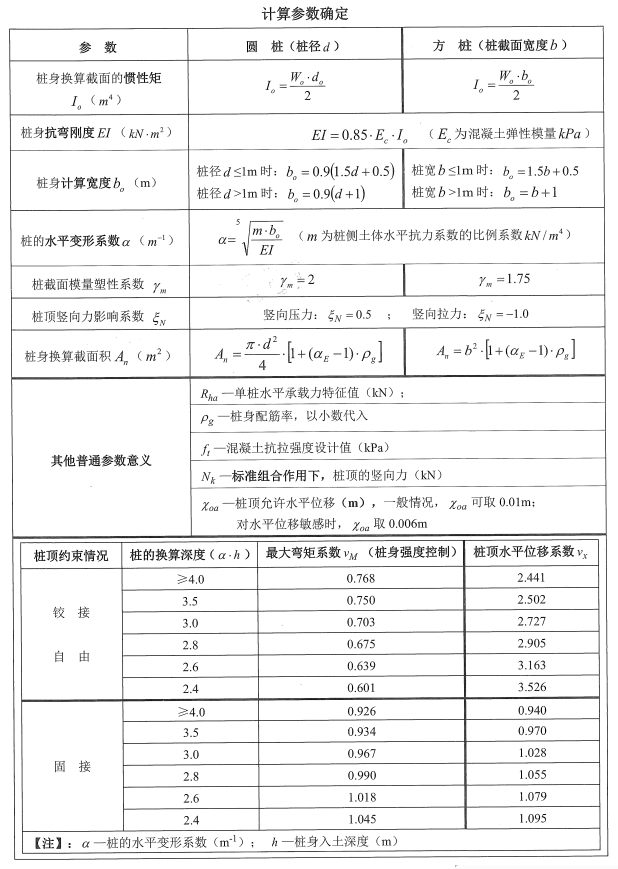 计算参数确定
参 数 圆 桩（桩径 d ） 方 桩（桩截面宽度 b ）
桩身换算截面的惯性矩 I₀ （ m⁴ ） I₀ = W₀·d₀ / 2 I₀ = W₀·b₀ / 2
桩身抗弯刚度 EI （ kN·m² ） EI = 0.85·E_c·I₀ （ E_c 为混凝土弹性模量 kPa ）
桩身计算宽度 b₀ （m） 桩径 d ≤1m 时：b₀ = 0.9(1.5d + 0.5) 桩宽 b ≤1m 时：b₀ = 1.5b + 0.5
桩径 d >1m 时：b₀ = 0.9(d + 1) 桩宽 b >1m 时：b₀ = b + 1
桩的水平变形系数 α （ m⁻¹ ） α= ⁵√(m·b₀ / EI) （ m 为桩侧土体水平抗力系数的比例系数 kN / m⁴ ）
桩截面模量塑性系数 γ_m γ_m = 2 γ_m = 1.75
桩顶竖向力影响系数 ξ_N 竖向压力：ξ_N = 0.5 ； 竖向拉力：ξ_N = −1.0
桩身换算截面积 A_n （ m² ） A_n = π·d² / 4 ·[1+(α_E −1)·ρ_g] A_n = b² ·[1+(α_E −1)·ρ_g]
其他普通参数意义
R_ha —单桩水平承载力特征值（kN）；
ρ_g —桩身配筋率，以小数代入
f_t —混凝土抗拉强度设计值（kPa）
N_k —标准组合作用下，桩顶的竖向力（kN）
χ_oa —桩顶允许水平位移（m），一般情况， χ_oa 可取 0.01m；
对水平位移敏感时， χ_oa 取 0.006m
桩顶约束情况 桩的换算深度（ α·h ） 最大弯矩系数 ν_M （桩身强度控制） 桩顶水平位移系数 ν_x
铰 接
自 由
≥4.0 0.768 2.441
3.5 0.750 2.502
3.0 0.703 2.727
2.8 0.675 2.905
2.6 0.639 3.163
2.4 0.601 3.526
固 接
≥4.0 0.926 0.940
3.5 0.934 0.970
3.0 0.967 1.028
2.8 0.990 1.055
2.6 1.018 1.079
2.4 1.045 1.095
【注】： α —桩的水平变形系数（m⁻¹）； h —桩身入土深度（m）